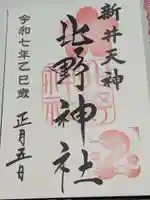 新井天神
北野神社
令和七年乙巳歳
正月五日